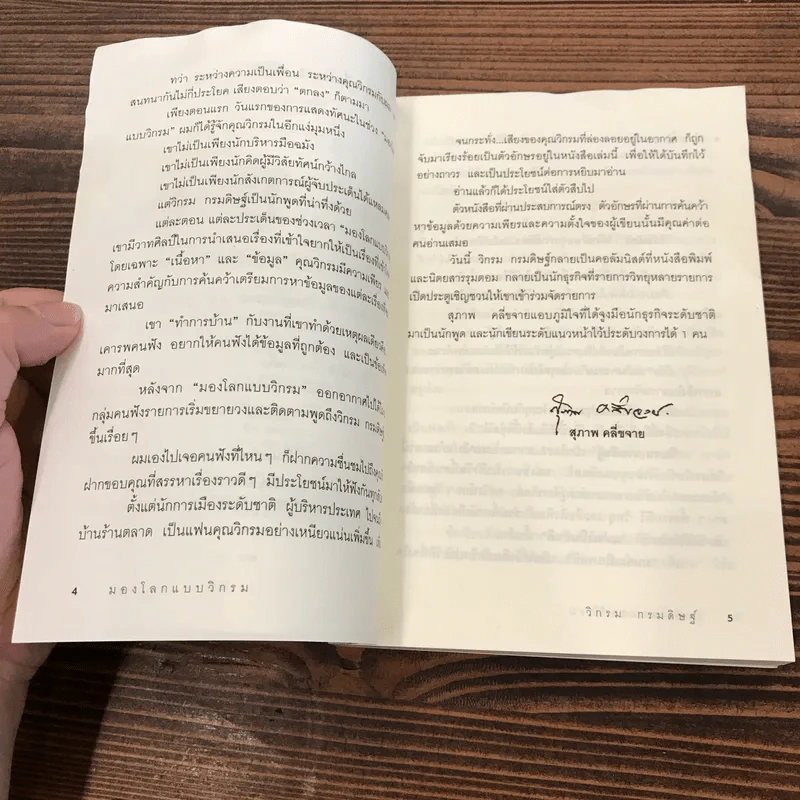 ทว่า ระหว่างความเป็นเพื่อน ระหว่างคุณวิกรมกับ
สนทนากันไม่กี่ประโยค เสียงตอบว่า “ตกลง” ก็ตามมา
เพียงตอนแรก วันแรกของการแสดงทัศนะในช่วง
แบบวิกรม” ผมก็ได้รู้จักคุณวิกรมในอีกแง่มุมหนึ่ง
เขาไม่เป็นเพียงนักบริหารมือฉมัง
เขาไม่เป็นเพียงนักคิดผู้มีวิสัยทัศน์กว้างไกล
เขาไม่เป็นเพียงนักสังเกตการณ์ผู้จับประเด็นได้แหลมคม
แต่วิกรม กรมดิษฐ์เป็นนักพูดที่น่าทึ่งด้วย
แต่ละตอน แต่ละประเด็นของช่วงเวลา “มองโลกแบบวิ
เขามีวาทศิลป์ในการนำเสนอเรื่องที่เข้าใจยากให้เป็นเรื่องที่
โดยเฉพาะ “เนื้อหา” และ “ข้อมูล” คุณวิกรมมีความเพียร
ความสำคัญกับการค้นคว้าเตรียมการหาข้อมูลของแต่ละเรื่อง
มาเสนอ
เขา “ทำการบ้าน” กับงานที่เขาทำด้วยเหตุผลเดียว
เคารพคนฟัง อยากให้คนฟังได้ข้อมูลที่ถูกต้อง และเป็น
มากที่สุด
หลังจาก “มองโลกแบบวิกรม” ออกอากาศไป
กลุ่มคนฟังรายการเริ่มขยายวงและติดตามพูดถึงวิกรม กรมดิษฐ์
ขึ้นเรื่อยๆ
ผมเองไปเจอคนฟังที่ไหนๆ ก็ฝากความชื่นชมไปถึง
ฝากขอบคุณที่สรรหาเรื่องราวดีๆ มีประโยชน์มาให้ฟังกัน
ตั้งแต่นักการเมืองระดับชาติ ผู้บริหารประเทศ
บ้านร้านตลาด เป็นแฟนคุณวิกรมอย่างเหนียวแน่นเพิ่มขึ้น
4 มองโลกแบบวิกรม
จนกระทั่ง...เสียงของคุณวิกรมที่ล่องลอยอยู่ในอากาศ ก็ถูก
จับมาเรียงร้อยเป็นตัวอักษรอยู่ในหนังสือเล่มนี้ เพื่อให้ได้บันทึกไว้
อย่างถาวร และเป็นประโยชน์ต่อการหยิบมาอ่าน
อ่านแล้วก็ได้ประโยชน์ใส่ตัวสืบไป
ตัวหนังสือที่ผ่านประสบการณ์ตรง ตัวอักษรที่ผ่านการค้นคว้า
หาข้อมูลด้วยความเพียรและความตั้งใจของผู้เขียนนั้นมีคุณค่าต่อ
คนอ่านเสมอ
วันนี้ วิกรม กรมดิษฐ์กลายเป็นคอลัมนิสต์ที่หนังสือพิมพ์
และนิตยสารรุมตอม กลายเป็นนักธุรกิจที่รายการวิทยุหลายรายการ
เปิดประตูเชิญชวนให้เขาเข้าร่วมจัดรายการ
สุภาพ คลี่ขจายแอบภูมิใจที่ได้จูงมือนักธุรกิจระดับชาติ
มาเป็นนักพูด และนักเขียนระดับแนวหน้าไว้ประดับวงการได้ 1 คน
สุภาพ คลี่ขจาย
สุภาพ คลี่ขจาย
วิกรม กรมดิษฐ์ 5